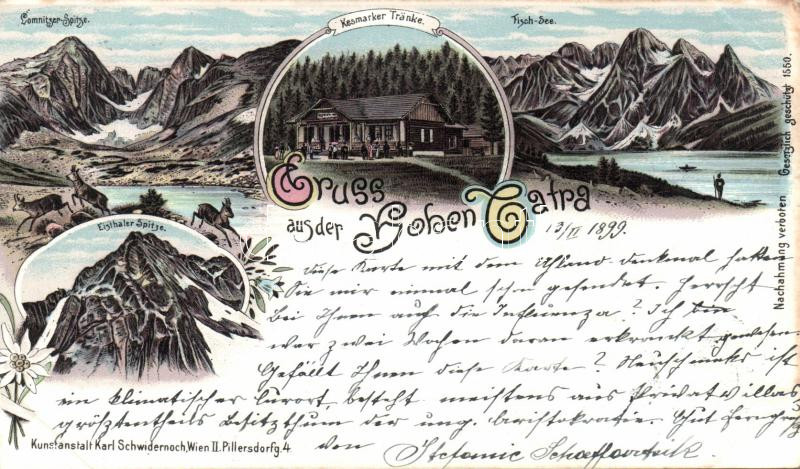 Lomnitzer-Spitze.
Kesmarker Tränke.
Fisch-See.
Gruss
aus der Hohen Tatra
Eisthaler Spitze.
13/II 1899.
diese Karte mit dem Uhland-denkmal haben
Sie mir einmal schon gesendet. Herrscht
bei Ihnen auch die Influenza? Ich bin
war zwei Wochen daran erkrankt gewesen.
Gefällt Ihnen diese Karte? Neuschmeks ist
ein klimatischer Curort, besteht meistens aus Privatvillas
größtentheils Besitzthum der ung. Aristokratie. Gut
von Stefanie
Kunstanstalt Karl Schwidernoch, Wien II. Pillersdorfg. 4
Nachahmung verboten Gesetzlich geschützt 1550.